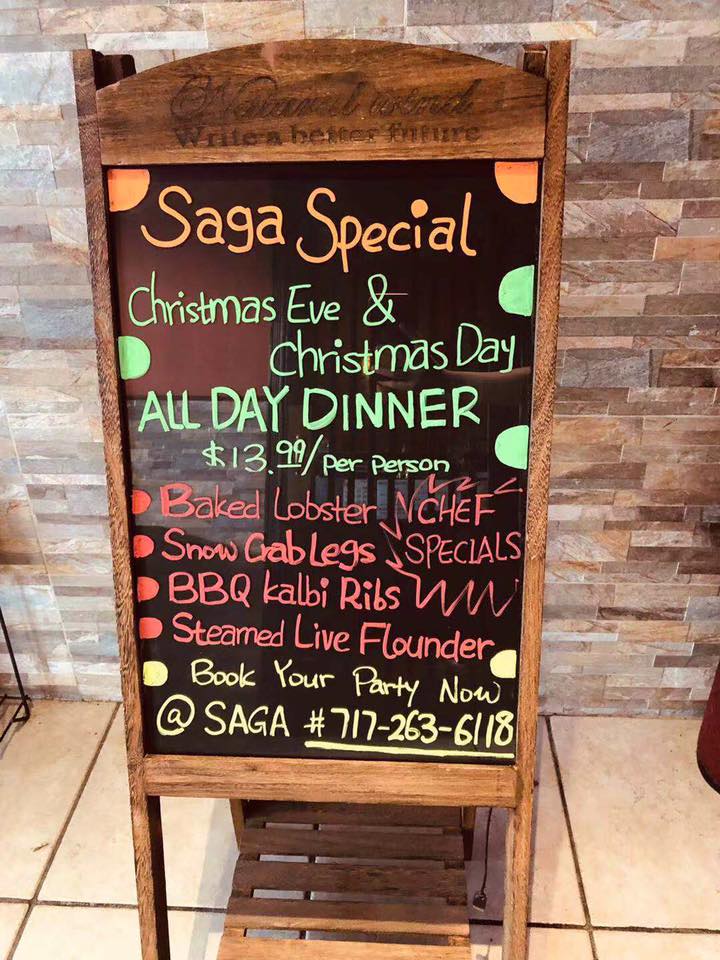 Natural wind
Write a better future
Saga Special
Christmas Eve &
Christmas Day
ALL DAY DINNER
$13.99/per person
Baked Lobster CHEF
Snow Crab Legs SPECIALS
BBQ Kalbi Ribs
Steamed Live Flounder
Book Your Party Now
@ SAGA # 717-263-6118